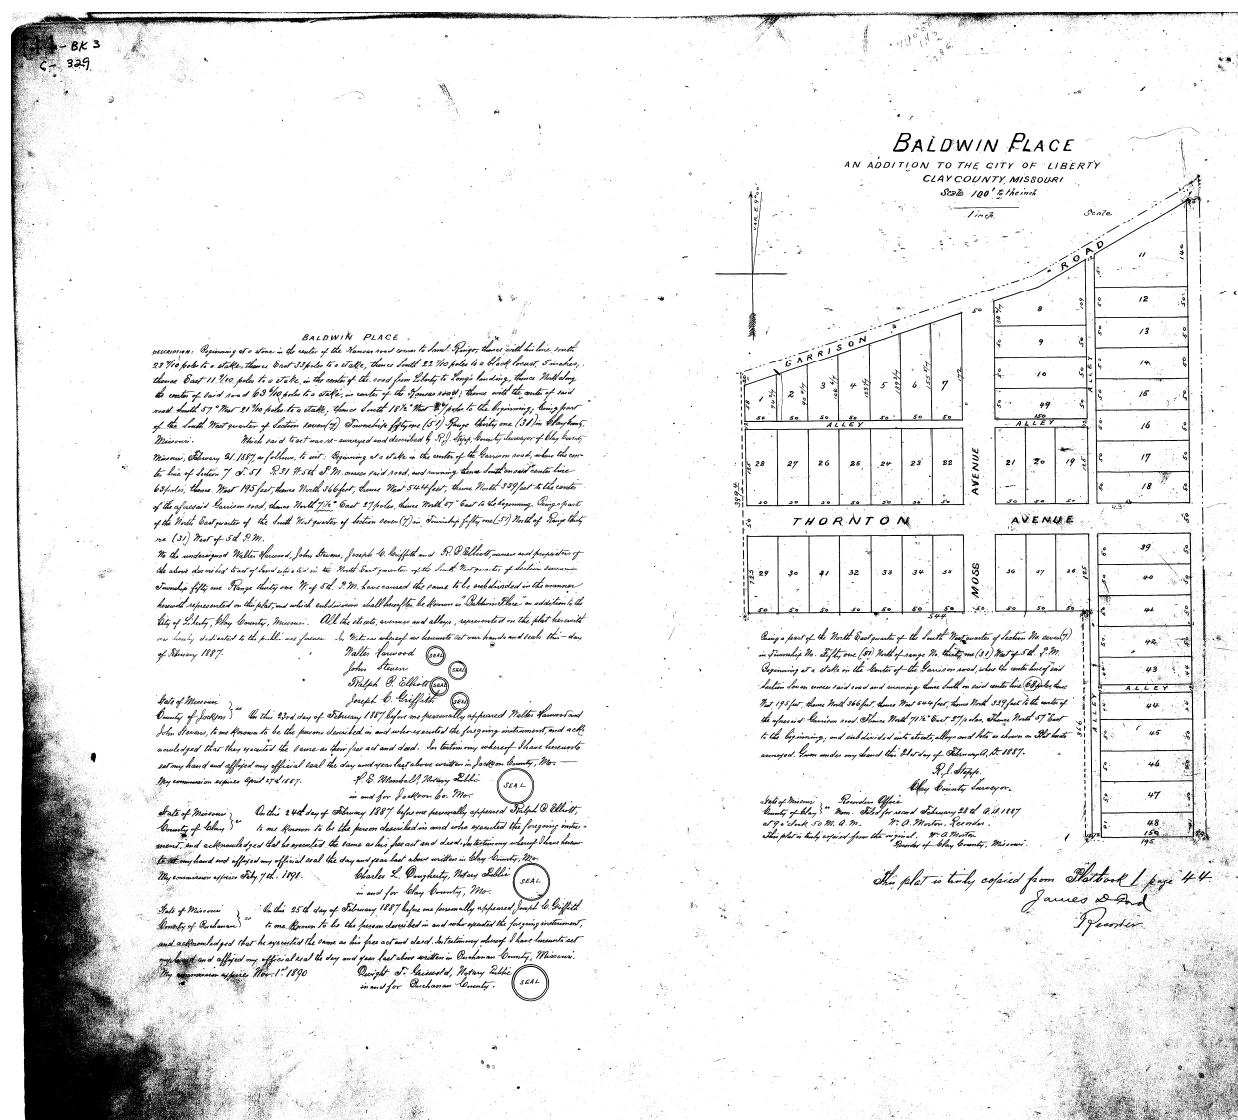 44 - BK 3
C - 329
BALDWIN PLACE
AN ADDITION TO THE CITY OF LIBERTY
CLAY COUNTY, MISSOURI
Scale 100' to the inch
1 inch Scale
VAR. E.
GARRISON ROAD
11
140
12
13
14
15
16
17
18
8
9
10
49
150
1 2 3 4 5 6 7
50 50 50 50 50 50 50
ALLEY
ALLEY
ALLEY
28 27 26 25 24 23 22
21 20 19
MOSS AVENUE
THORNTON AVENUE
29 30 31 32 33 34 35
36 37 38
39
40
41
42
43
ALLEY
44
45
46
47
48
150
195
544
366
ALLEY
BALDWIN PLACE
DESCRIPTION: Beginning at a stone in the center of the Kansas road corner to Saml. Ringo, thence with his line, south
poles to a stake, thence East 33 poles to a stake, thence South 22 poles to a black locust, 5 inches,
thence East 11 poles to a stake, in the center of the road from Liberty to Long's landing, thence North along
the center of said road 63 poles to a stake, in center of the Kansas road; thence with the center of said
road South 57° West poles to a stake, thence South West poles to the beginning, being part
of the South West quarter of Section seven (7) Township fifty one (51) Range thirty one (31) in Clay County
Missouri. Which said tract was re-surveyed and described by R.J. Stepp, County Surveyor of Clay County
Missouri, February 21, 1887, as follows, to wit: Beginning at a stake in the center of the Garrison road, where the cen-
ter line of Section 7 T. 51 R. 31 W. 5th P.M. crosses said road, and running thence South on said center line
63 poles, thence West 195 feet, thence North 366 feet, thence West 544 feet, thence North 339 feet to the center
of the aforesaid Garrison road, thence North 71½° East 27 poles, thence North 57° East to the beginning. Being a part
of the North East quarter of the South West quarter of Section seven (7) in Township fifty one (51) North of Range thirty
one (31) West of 5th P.M.
We the undersigned Walter Harwood, John Stevens, Joseph C. Griffith and R. P. Elliott, owners and proprietors of
the above described tract of land situated in the North East quarter of the South West quarter of section seven in
Township fifty one Range thirty one W. of 5th P.M. have caused the same to be subdivided in the manner
herewith represented on this plat, and which subdivision shall hereafter be known as "Baldwin Place" an addition to the
City of Liberty, Clay County, Missouri. All the streets, avenues and alleys, represented on the plat herewith
are hereby dedicated to the public use forever. In Witness whereof we hereunto set our hands and seals this — day
of February 1887.
Walter Harwood SEAL
John Stevens SEAL
Ralph P. Elliott SEAL
Joseph C. Griffith SEAL
State of Missouri
County of Jackson } ss On this 23rd day of February 1887 before me personally appeared Walter Harwood and
John Stevens, to me known to be the persons described in and who executed the foregoing instrument, and ack-
nowledged that they executed the same as their free act and deed. In testimony whereof I have hereunto
set my hand and affixed my official seal the day and year last above written in Jackson County, Mo.
My commission expires April 27th 1887.
Marshall, Notary Public
in and for Jackson Co. Mo. SEAL
State of Missouri
County of Clay } ss On this 24th day of February 1887 before me personally appeared Ralph P. Elliott,
to me known to be the person described in and who executed the foregoing instru-
ment, and acknowledged that he executed the same as his free act and deed. In testimony whereof I have hereun-
to set my hand and affixed my official seal the day and year last above written in Clay County, Mo.
My commission expires Feby. 7th. 1891. Charles L. Dougherty, Notary Public
in and for Clay County, Mo. SEAL
State of Missouri
County of Buchanan } ss On this 25th day of February 1887 before me personally appeared Joseph C. Griffith
to me known to be the person described in and who executed the foregoing instrument,
and acknowledged that he executed the same as his free act and deed. In testimony whereof I have hereunto set
my hand and affixed my official seal the day and year last above written in Buchanan County, Missouri.
My commission expires Nov. 1st 1890 Dwight Griswold, Notary Public
in and for Buchanan County. SEAL
Being a part of the North East quarter of the South West quarter of Section No. seven (7)
in Township No. Fifty one (51) North of range No. thirty one (31) West of 5th P.M.
Beginning at a stake in the Center of the Garrison road, where the center line of said
Section Seven crosses said road and running thence South on said center line 63 poles, thence
West 195 feet, thence North 366 feet, thence West 544 feet, thence North 339 feet to the center of
the aforesaid Garrison road. Thence North 71½° East 27 poles, Thence North 57° East
to the beginning, and subdivided into streets, alleys and lots as shown on Plat hereto
annexed. Given under my hand this 21st day of February A.D. 1887.
R. J. Stepp,
Clay County Surveyor.
State of Missouri
County of Clay } ss Recorders Office
Filed for record February 28th A.D. 1887
at 9 o'clock 50 M. A.M. W. A. Morton, Recorder.
This plat is truly copied from the original. W. A. Morton
Recorder of Clay County, Missouri.
This plat is truly copied from Platbook 1, page 44.
James D. Ford
Recorder